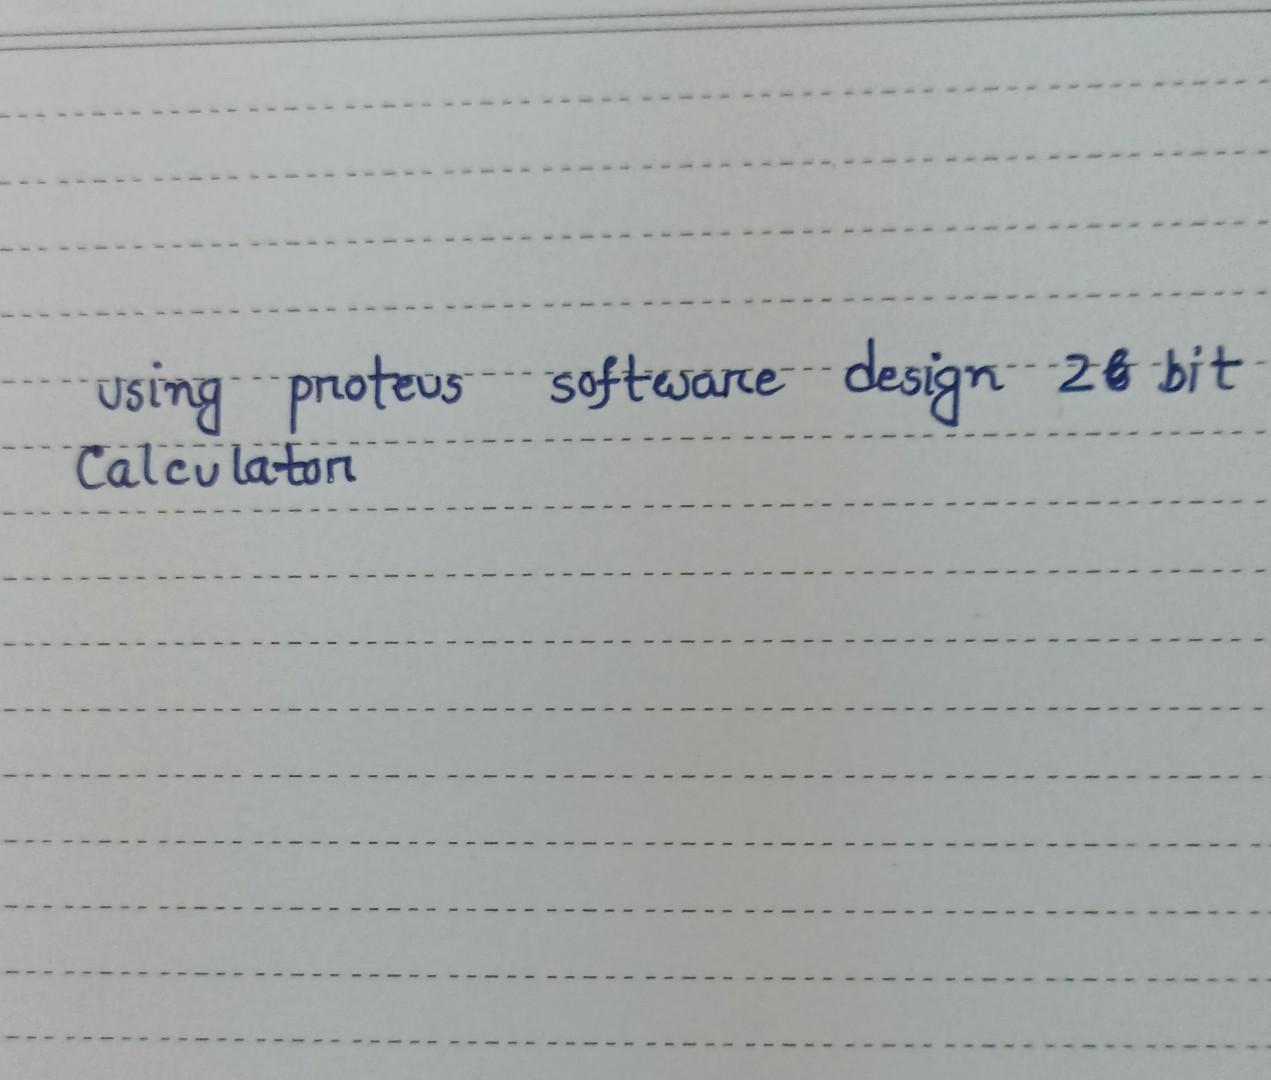 using proteus software design 26 bit
Calculator